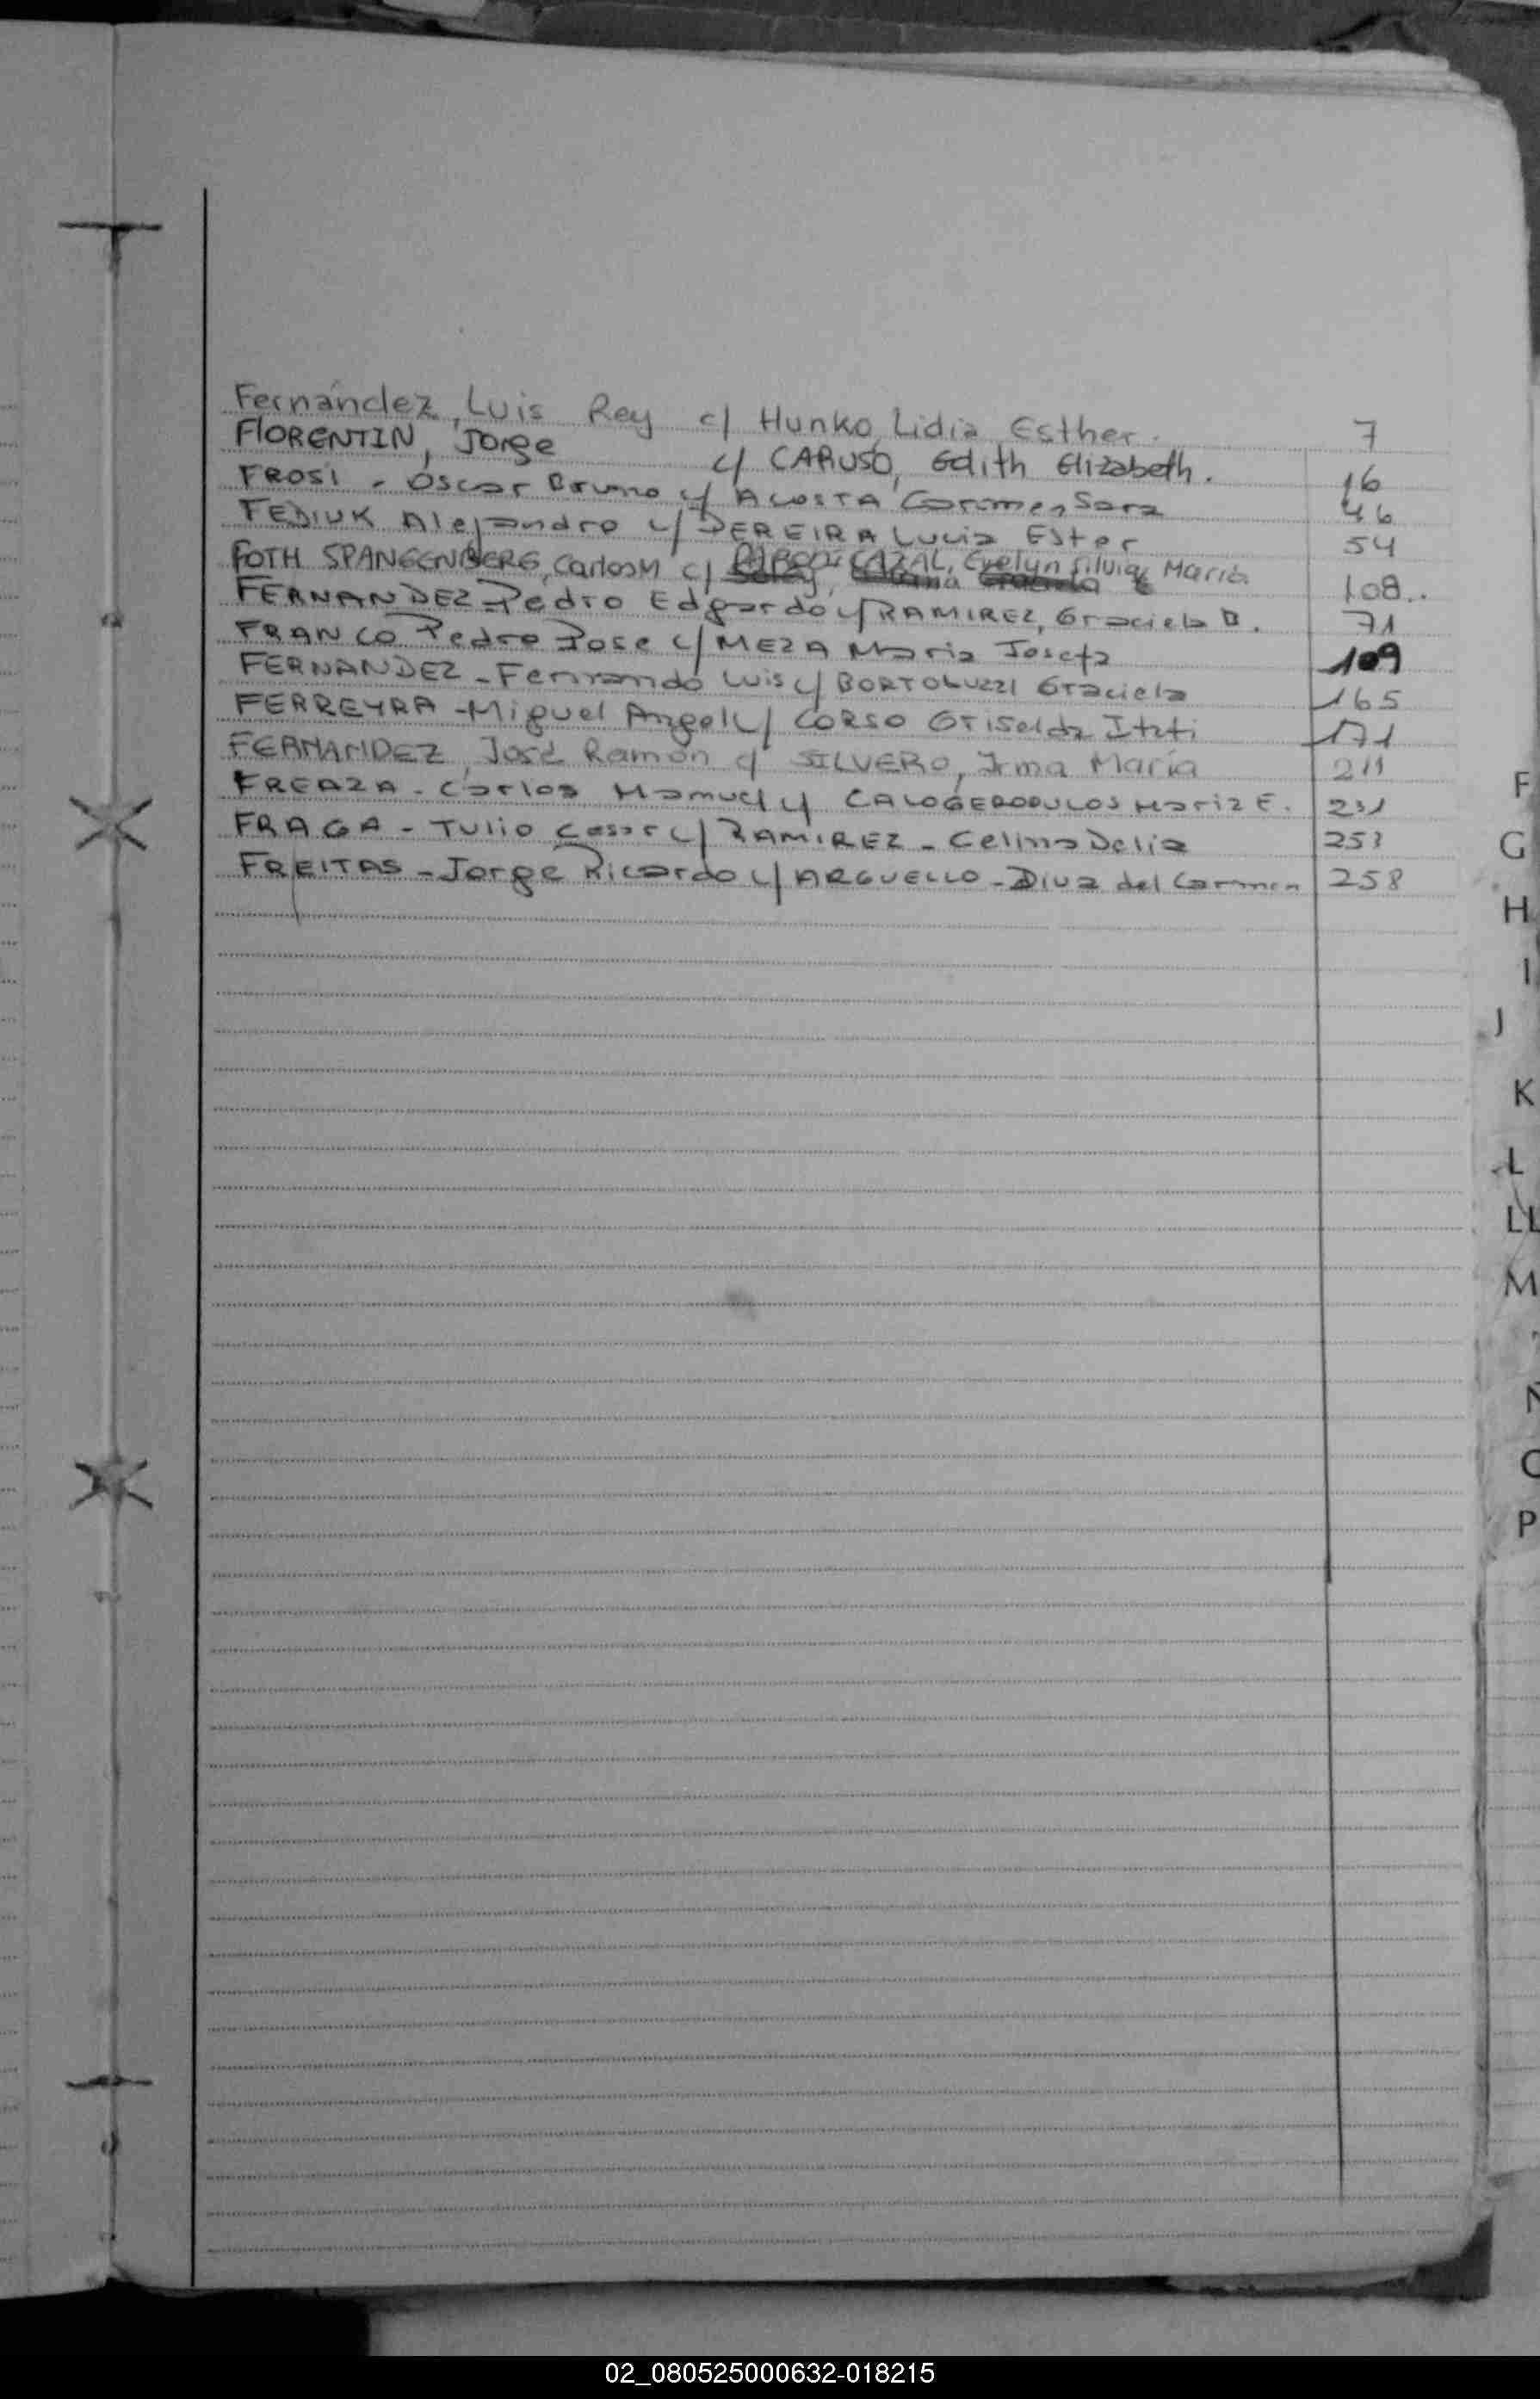 Fernández, Luis Rey c/ Hunko, Lidia Esther. 7
FlORENTIN, Jorge c/ CARUSO, Edith Elizabeth. 16
FROSI - Oscar Bruno c/ ACOSTA Carmen Sara 46
FEDIUK Alejandro c/ PEREIRA Lucia Ester 54
FOTH SPANGENBERG, Carlos M c/ CAZAL, Evelyn Silvia María 108..
FERNANDEZ - Pedro Edgardo c/ RAMIREZ, Graciela B. 71
FRANCO Pedro Jose c/ MEZA Maria Josefa 109
FERNANDEZ - Fernando Luis c/ BORTOLUZZI Graciela 165
FERREYRA - Miguel Angel c/ CORSO Griselda Itati 171
FERNANDEZ, José Ramón c/ SILVERO, Irma María 211
FREAZA - Carlos Manuel c/ CALOGEROPULOS Maria E. 231
FRAGA - Tulio Cesar c/ RAMIREZ - Celina Delia 253
FREITAS - Jorge Ricardo c/ ARGUELLO - Diva del Carmen 258
F
G
H
I
J
K
L
LL
M
N
O
P
02_080525000632-018215